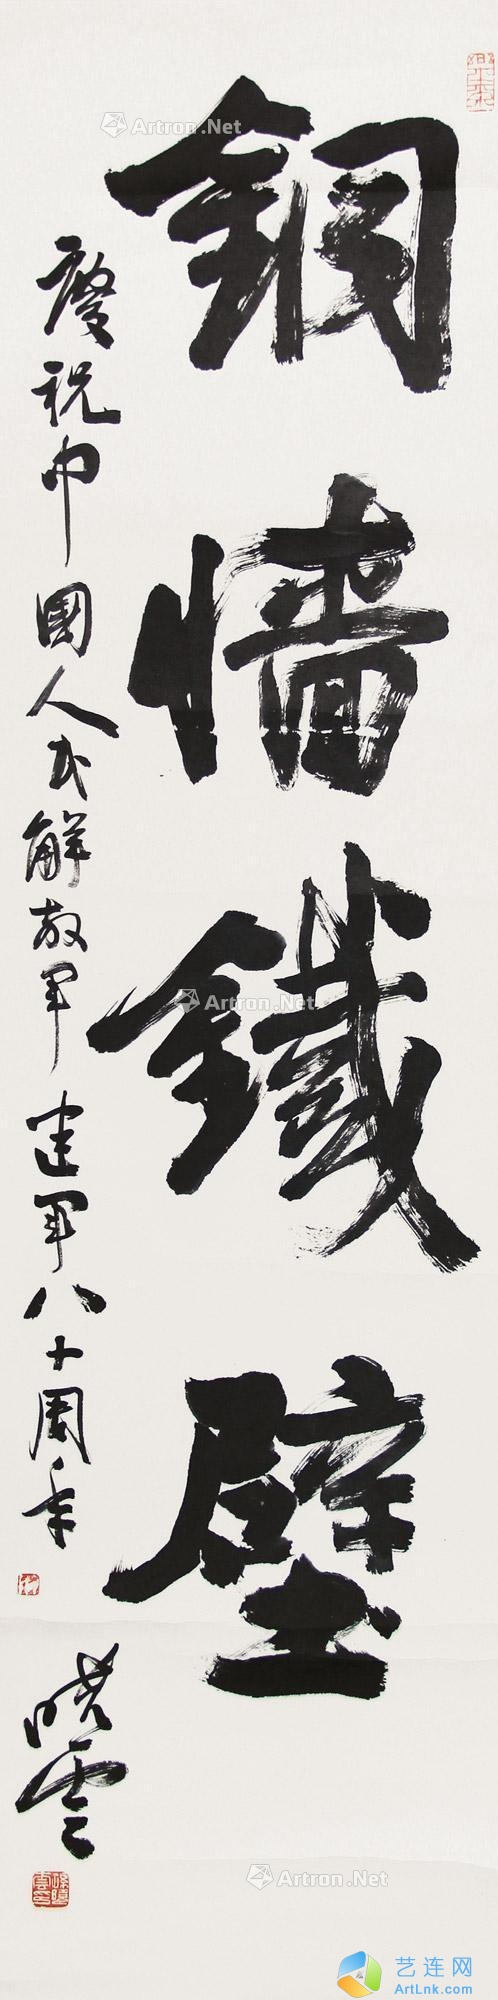 銅墙鐵壁
慶祝中國人民解放軍建軍八十周年
晓雲
Artron.Net
Artron.Net
Artron.Net
艺连网
ArtLnk.com